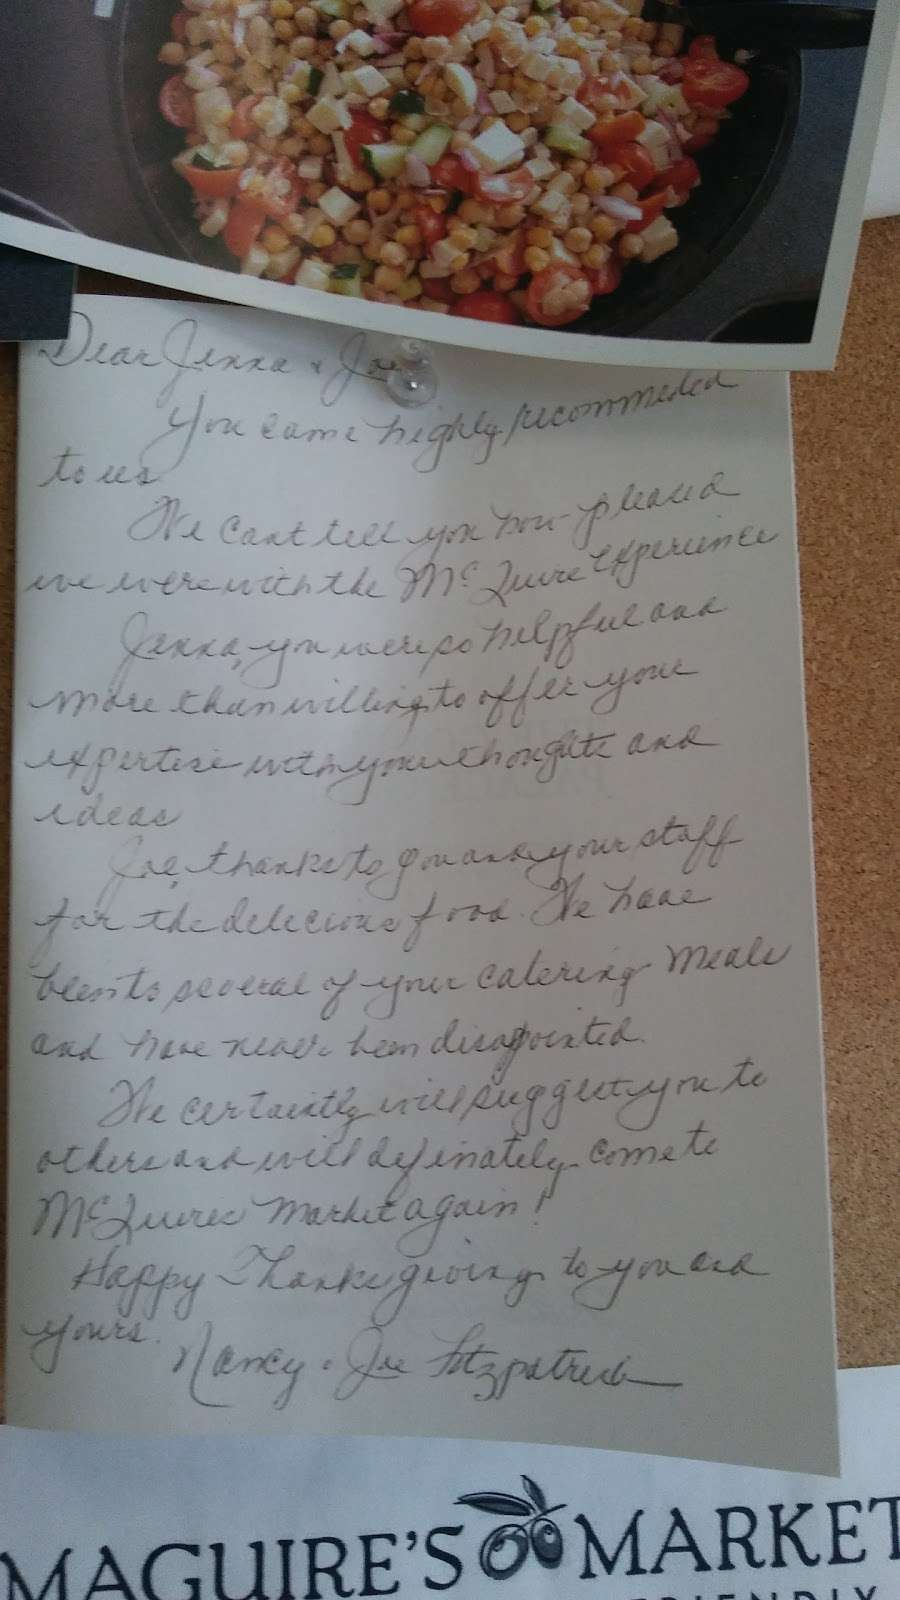 Dear Jenna & Joe
You came highly recommeded
to us.
We cant tell you how pleased
we were with the McQuire experience
Jenna, you were so helpful and
more than willing to offer your
expertise with your thoughts and
ideas
Joe, thanks to you and your staff
for the delicious food. We have
been to several of your catering meals
and have never been disappointed.
We certaintly will suggest you to
others and will definately come to
McQuires Market again!
Happy Thanksgiving to you and
yours.
Nancy & Joe Fitzpatrick
MAGUIRE'S MARKET
FRIENDLY